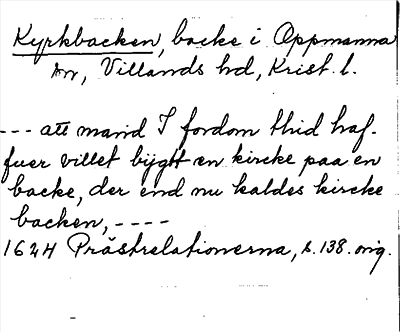 Kyrkbacken, backe i Oppmanna
sn, Villands hd, Krist. l.
--- att mand I fordom thid haf-
fuer villet bijgtt en kircke paa en
backe, der end nu kaldes kircke
backen, ----
1624 Prästrelationerna, s. 138. orig.